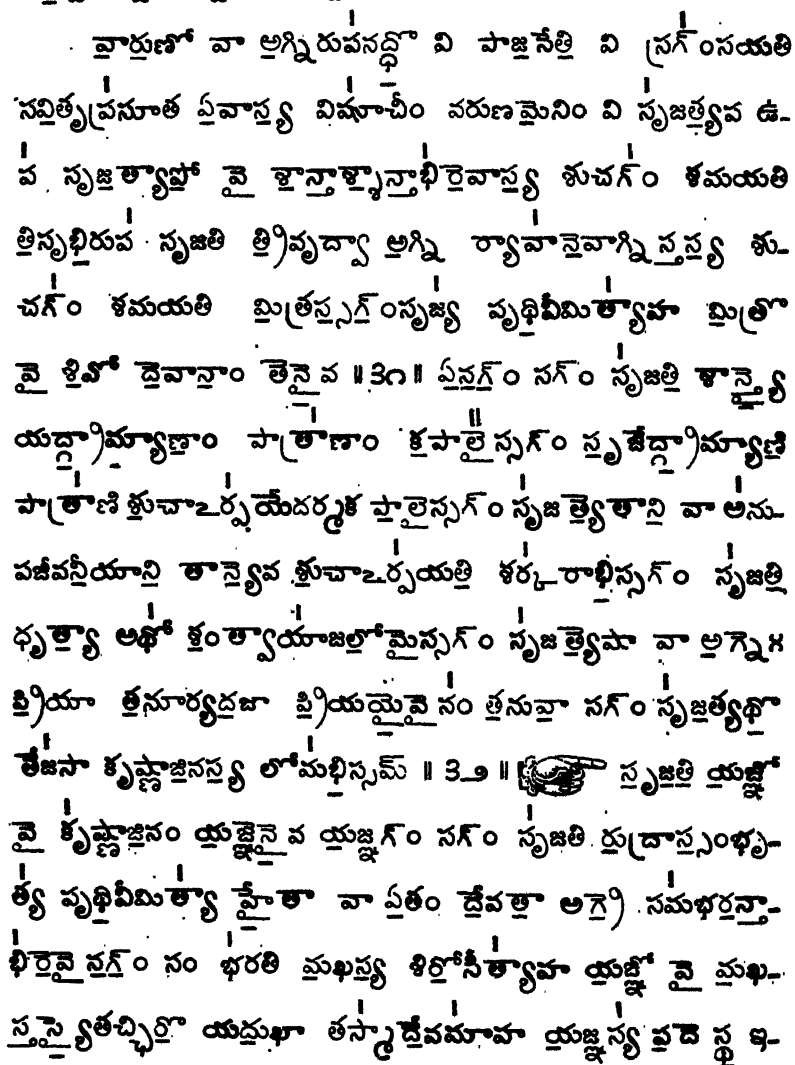 వారుణో వా అగ్నిరుపనద్ధో వి పాజసేతి వి స్రగ్ంసయతి
సవితృప్రసూత ఏవాస్య విషూచీం వరుణమేనిం వి సృజత్యప ఉ-
ప సృజత్యాపో వై శాన్తాశ్శాన్తాభిరేవాస్య శుచగ్ం శమయతి
తిసృభిరుప సృజతి త్రివృద్వా అగ్ని ర్యావానేవాగ్ని స్తస్య శు-
చగ్ం శమయతి మిత్రస్సగ్ంసృజ్య పృథివీమిత్యాహ మిత్రో
వై శివో దేవానాం తేనై వ ॥ ౩౧ ॥ ఏనగ్ం సగ్ం సృజతి శాన్త్యై
యద్గ్రామ్యాణాం పాత్రాణాం కపాలై స్సగ్ం సృజేద్గ్రామ్యాణి
పాత్రాణి శుచాఽర్పయేదర్మక పాలైస్సగ్ం సృజ త్యేతాని వా అను-
పజీవనీయాని తాన్యేవ శుచాఽర్పయతి శర్క రాభిస్సగ్ం సృజతి
ధృత్యా అథో శంత్వాయాజలోమైస్సగ్ం సృజ త్యేషా వా అగ్నేః
ప్రియా తనూర్యదజా ప్రియయైవైనం తనువా సగ్ం సృజత్యథో
తేజసా కృష్ణాజినస్య లోమభిస్సమ్ ॥ ౩౨ ॥ సృజతి యజ్ఞో
వై కృష్ణాజినం యజ్ఞేనై వ యజ్ఞగ్ం సగ్ం సృజతి రుద్రాస్సంభృ-
త్య పృథివీమిత్యా హైతా వా ఏతం దేవతా అగ్రే సమభరన్తా-
భిరేవై నగ్ం సం భరతి మఖస్య శిరోసీత్యాహ యజ్ఞో వై మఖ-
స్తస్యైతచ్ఛిరో యదుఖా తస్మాదేవమాహ యజ్ఞస్య పదే స్థ ఇ-